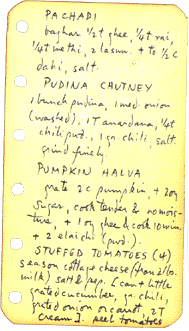 PACHADI
baghar ½t ghee, ¼t rai,
¼t methi, 2 lasun. + to ½ c
dahi, salt.
PUDINA CHUTNEY
1 bunch pudina, 1 med onion
(washed). 1T anardana, ¼t
chili pwd., 1 gr. chili, salt.
grind finely
PUMPKIN HALVA
grate 2c pumpkin, + 20g
sugar, cook tender & no mois-
ture, + 10g ghee & cook 10 min
+ 2 elaichi (pwd.).
STUFFED TOMATOES (4)
season cottage cheese (from 2 lbs.
milk) salt & pep. & can + little
grated cucumber, gr. chili,
grated onion or carrot, 2T
cream I. peel tomatoes